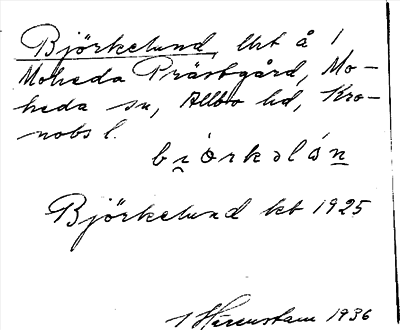 Björkelund, lht å 1
Moheda Prästgård, Mo-
heda sn, Allbo hd, Kro-
nobs l.
Björkelund kb 1925
Härenstam 1936